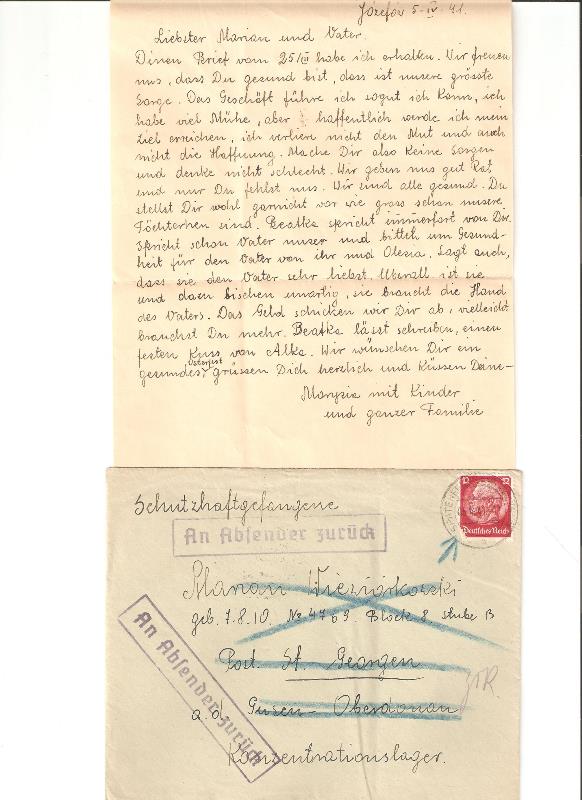 Józefów 5-IV 41.
Liebster Marian und Vater.
Dinen Brief vom 25/III habe ich erhalten. Wir freuen
uns, dass Du gesund bist, dass ist unsere grösste
Sorge. Das Geschäft führe ich sogut ich kann, ich
habe viel Mühe, aber haffentlich werde ich mein
Ziel erreichen, ich verliere nicht den Mut und auch
nicht die Haffnung. Mache Dir also keine Sorgen
und denke nicht schlecht. Wir geben uns gut Rat
und nur Du fehlst uns. Wir sind alle gesund. Du
stellst Dir wohl garnicht vor wie gross schon unsere
Töchterhen sind. Beatka spricht immerfort von Dir.
Spricht schon Vater unser und bitteh um Gesund-
heit für den Vater von ihr und Olesia. Sagt auch,
dass sie den Vater sehr liebst. Uberall ist sie
und dazu bischen unartig, sie braucht die Hand
des Vaters. Das Geld schicken wir Dir ab, vielleicht
brauchst Du mehr. Beatka lässt schreiben, einen
festen Kuss von Alka. Wir wünschen Dir ein
gesundes Osterfest, grüssen Dich herzlich und Küssen Deine-
Marysia mit Kinder
und ganzer Familie
Schutzhaftgefangene
An Absender zurück
12 12
Deutsches Reich
Marian Wieziórkowski
geb. 7.8.10. Nr 4709. Block 8. stube B
Post. St. Geargen
a.d. Gusen - Oberdonau
Konzentrationslager.
An Absender zurück